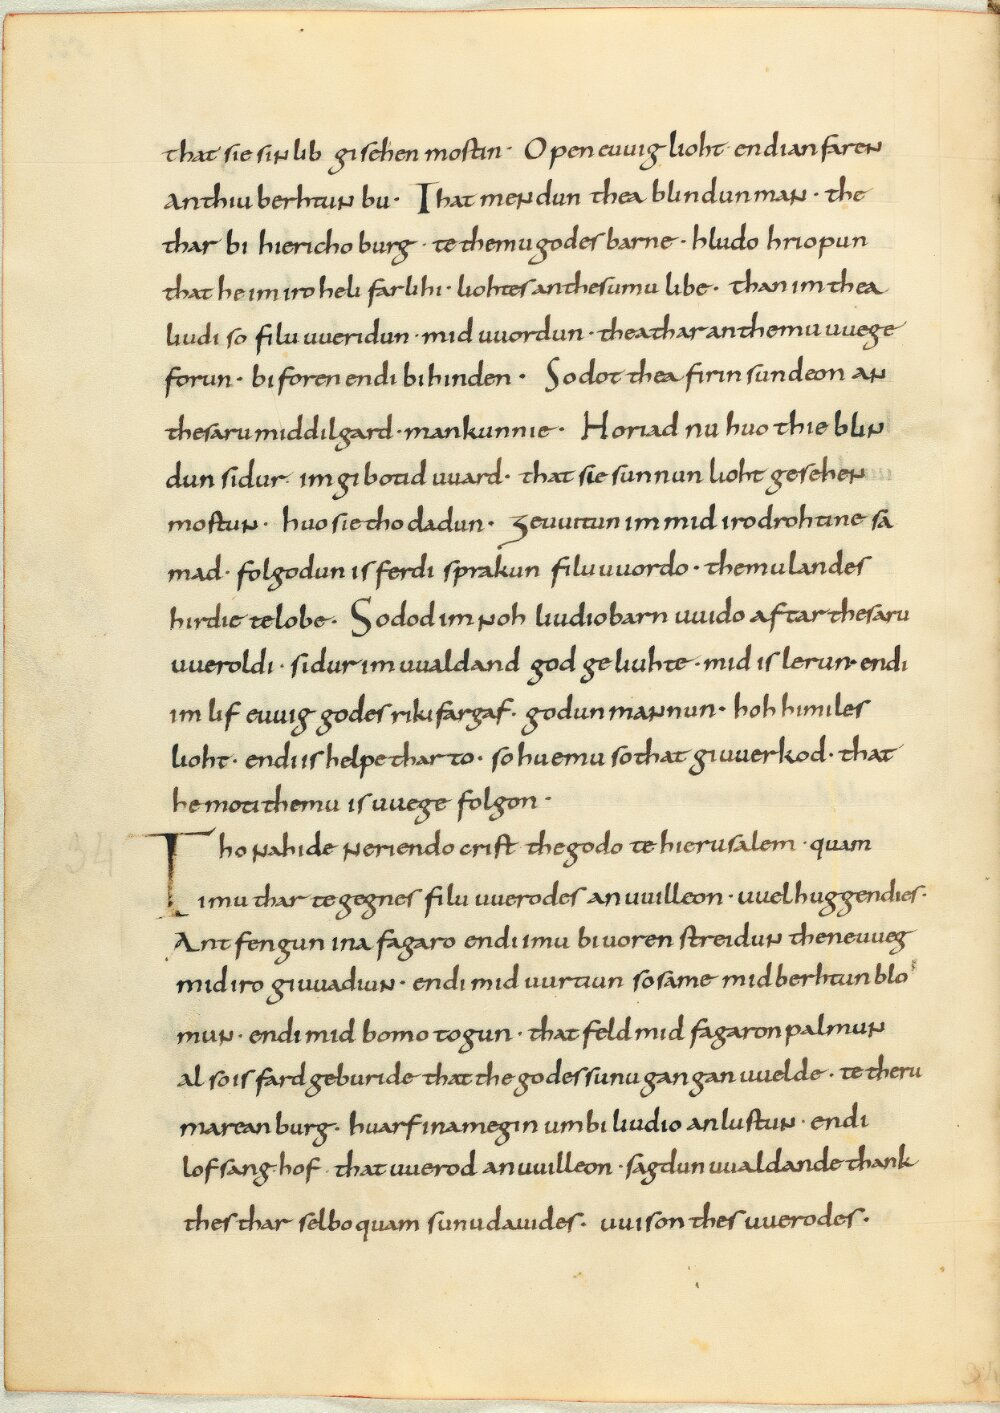 that sie sin lib gisehen mostin· Open euuig lioht endi an faren
an thiu berhtun bu· That mendun thea blindun man· the
thar bi hiericho burg· te themu godes barne· hludo hriopun
that he im iro heli farlihi· liohtes an thesumu libe· than im thea
liudi so filu uueridun· mid uuordun· thea thar an themu uuege
forun· biforen endi bihinden· So dot thea firinsundeon an
thesaru middilgard· mankunnie· Horiad nu huo thie blin
dun sidur im gibotid uuard· that sie sunnun lioht gesehen
mostun· huo sie tho dadun· geuuitun im mid iro drohtine sa
mad· folgodun is ferdi sprakun filu uuordo· themu landes
hirdie te lobe· So dod im noh liudio barn uuido aftar thesaru
uueroldi· sidur im uualdand god geliuhte· mid is lerun endi
im lif euuig godes riki fargaf· godun mannun· hoh himiles
lioht· endi is helpe thar to· so huemu so that giuuerkod· that
he moti themu is uuege folgon·
Tho nahide neriendo crist the godo te hierusalem· quam
imu thar tegegnes filu uuerodes an uuilleon· uuel huggendies·
Antfengun ina fagaro endi imu biuoren streidun thene uueg
mid iro giuuadiun· endi mid uurtiun so same mid berhtun blo
mun· endi mid bomo togun· that feld mid fagaron palmun
al so is fard geburide that the godes sunu gangan uuelde· te theru
marean burg· huarf ina megin umbi liudio an lustun· endi
lofsang hof that uuerod an uuilleon· sagdun uualdande thank
thes thar selbo quam sunu dauides· uuison thes uuerodes·
34